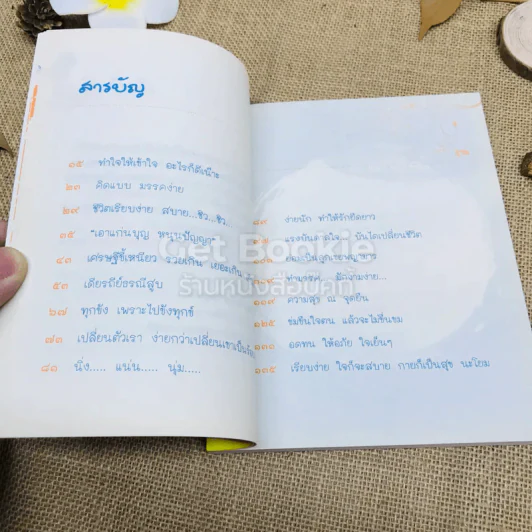 สารบัญ
๑๕ ทำใจให้เข้าใจ อะไรก็ดีเน๊าะ
๒๑ คิดแบบ มรรคง่าย
๒๙ ชีวิตเรียบง่าย สบาย...ชิว...ชิว...
๓๕ "เอาแก่นบุญ หนุนปัญญา
๔๓ เศรษฐีขี้เหนียว รวยเกิน เยอะเกิน
๕๓ เดียรถีย์ธรณีสูบ
๖๗ ทุกข์ขัง เพราะไปขังทุกข์
๗๓ เปลี่ยนตัวเรา ง่ายกว่าเปลี่ยนเขาเป็น
๘๓ นิ่ง..... แน่น..... นุ่ม.....
๘๙ ง่ายนัก ทำให้รักยืดยาว
แรงบันดาลใจ บันไดเปลี่ยนชีวิต
ทำบรรค์ มักง่าย...
๑๑๙ ความสุข ณ จุดยืน
๑๒๕ ชมชื่นใจตน แล้วจะไม่ขื่นขม
๑๓๑ อดทน ให้อภัย ใจเย็นๆ
๑๓๕ เรียบง่าย ใจก็จะสบาย กายก็เป็นสุข นะโยม
Get Bookie
ร้านหนังสือมุกกี้